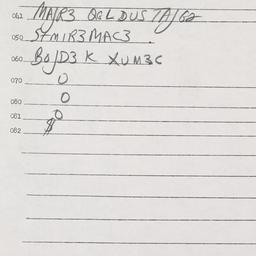 062 MAJR3 OGL DUS TAJ62
050 STMIR3MAC3 .
060 BOJD3 K XUM3C
070 0
080 0
081 0
082 $